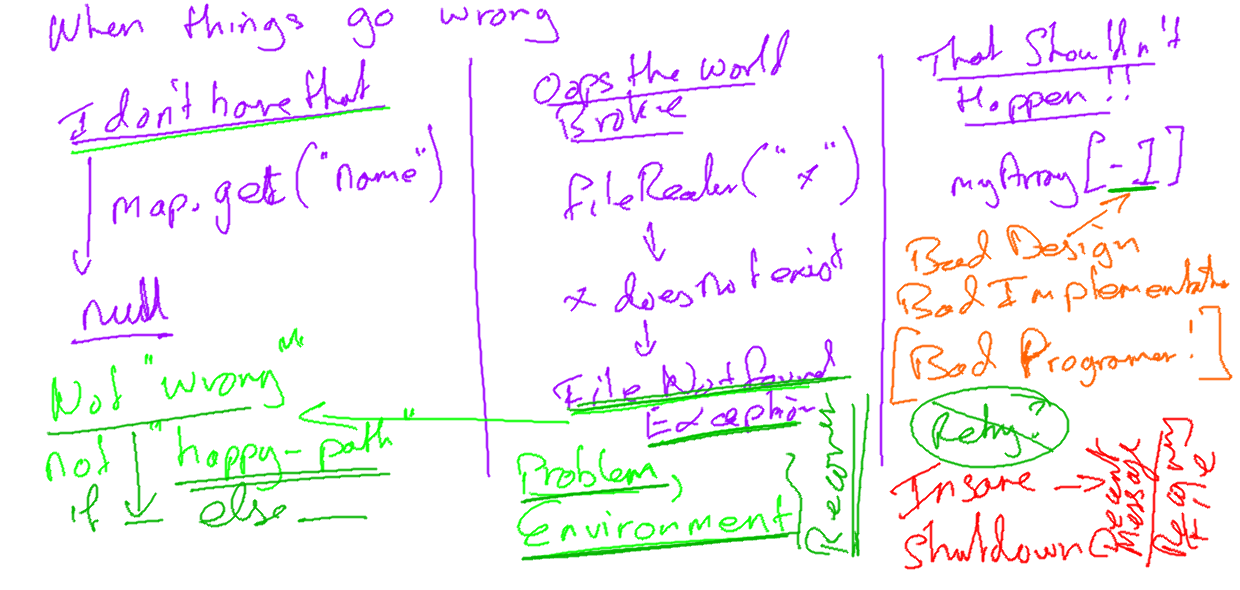 When things go wrong
I don't have that
map.get("name")
null
Not "wrong"
not "happy-path"
if _ else __
Oops the world
Broke
FileReader("x")
x does not exist
File Not Found
Exception
Problem,
Environment
Recover
That Shouldn't
Happen!!
myArray[-1]
Bad Design
Bad
[Bad Programer!]
Retry?
Insane
Shutdown
Decent
Message